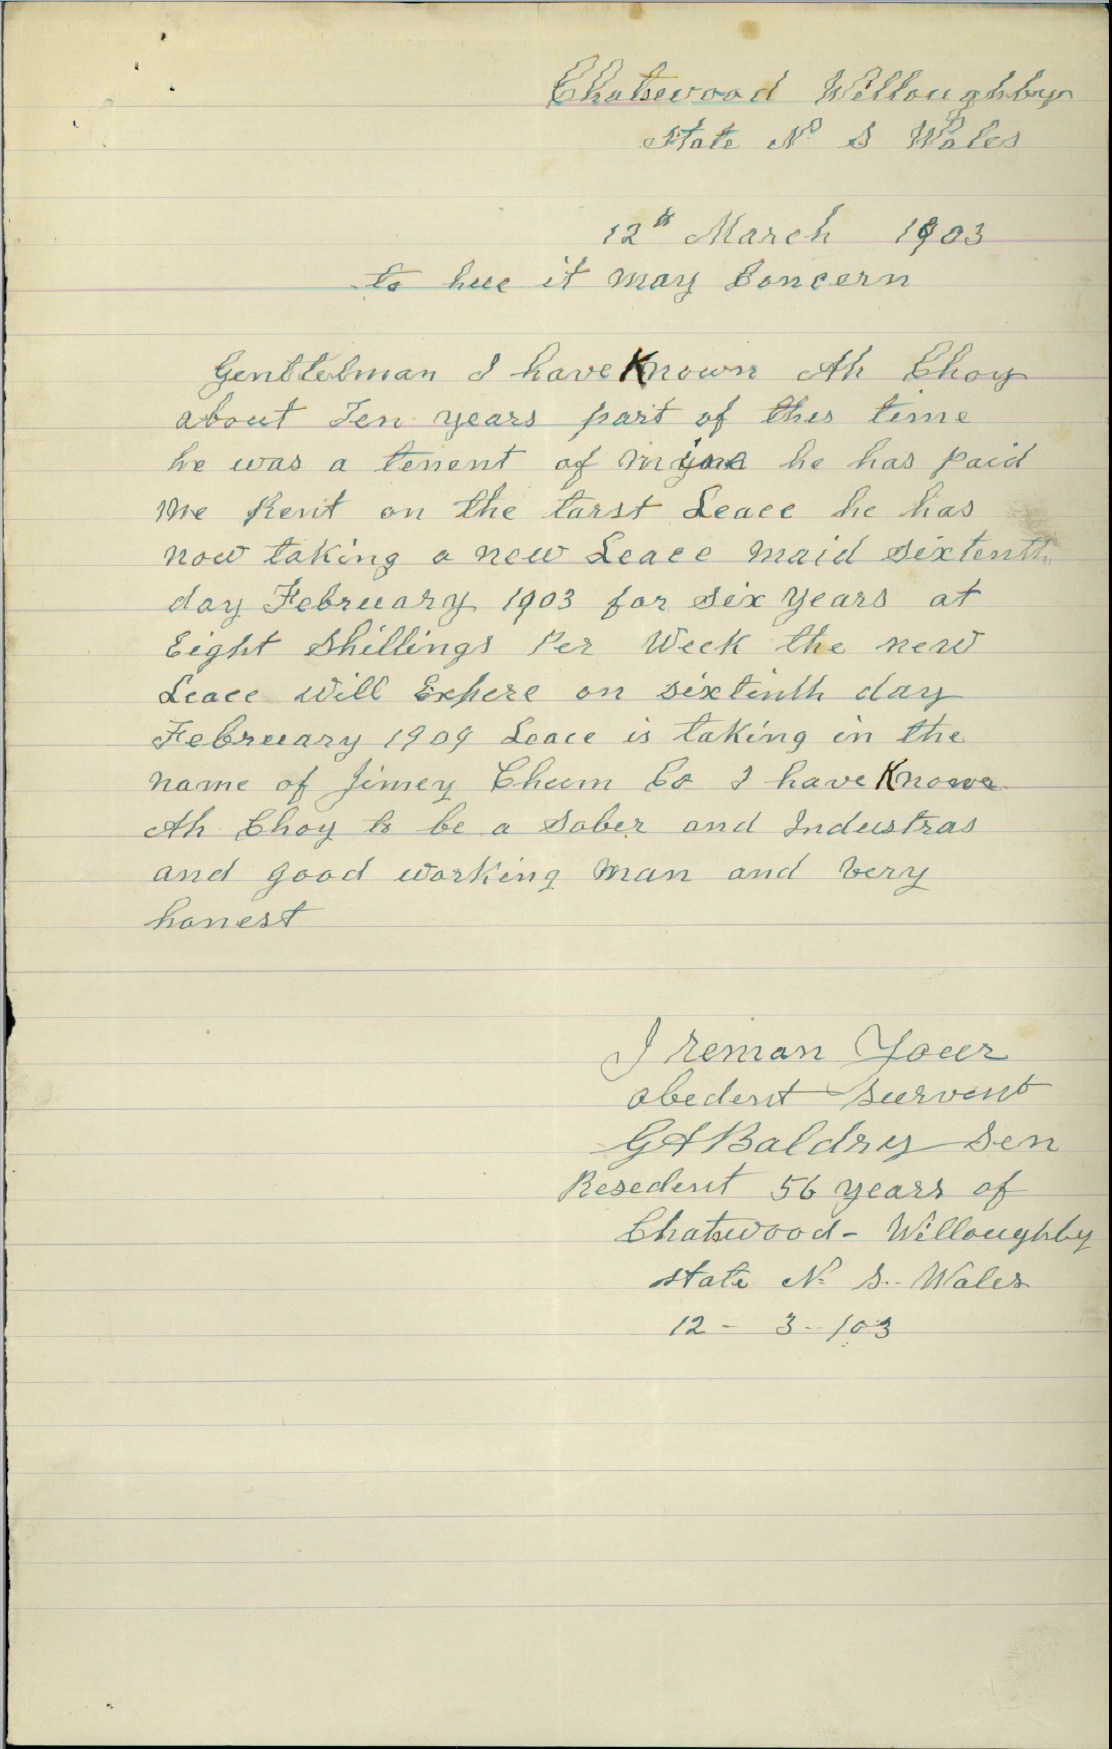 Chatswood Willoughby
State No S Wales
12th March 1903
to hue it may Concern
Genttelman I have Known Ah Choy
about Ten years part of this time
he was a tenent of mine he has paid
me Rent on the tarst Leace he has
now taking a new Leace maid sixtenth
day February 1903 for six years at
Eight Shillings Per Week the new
Leace will Expere on sixtinth day
February 1909 Leace is taking in the
name of Jimey Chum Co I have Knowe
Ah Choy to be a Sober and Industras
and good working man and very
honest
I reman Your
obedent Survent
G A Baldry Sen
Resedent 56 years of
Chatswood - Willoughby
state N. S. Wales
12 - 3 - 103